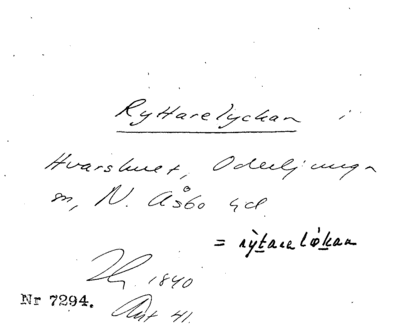 Ryttarelyckan i
Hvarshuet, Oderljunga
sn, N. Åsbo hd.
= rȳtarelökan
1840
Nr 7294. Ant 41.